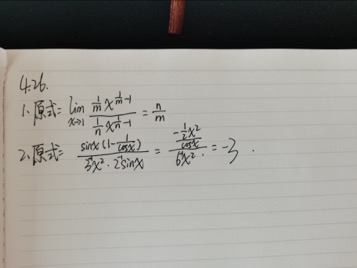 4.26.
1. 原式= lim x→1 (1/m x^(1/m -1))/(1/n x^(1/n -1)) = n/m
2. 原式= sinx(1-1/cosx)/(1/3 x²·1/2 sinx) = (-1/2 x²/cosx)/(1/6 x²) = -3.